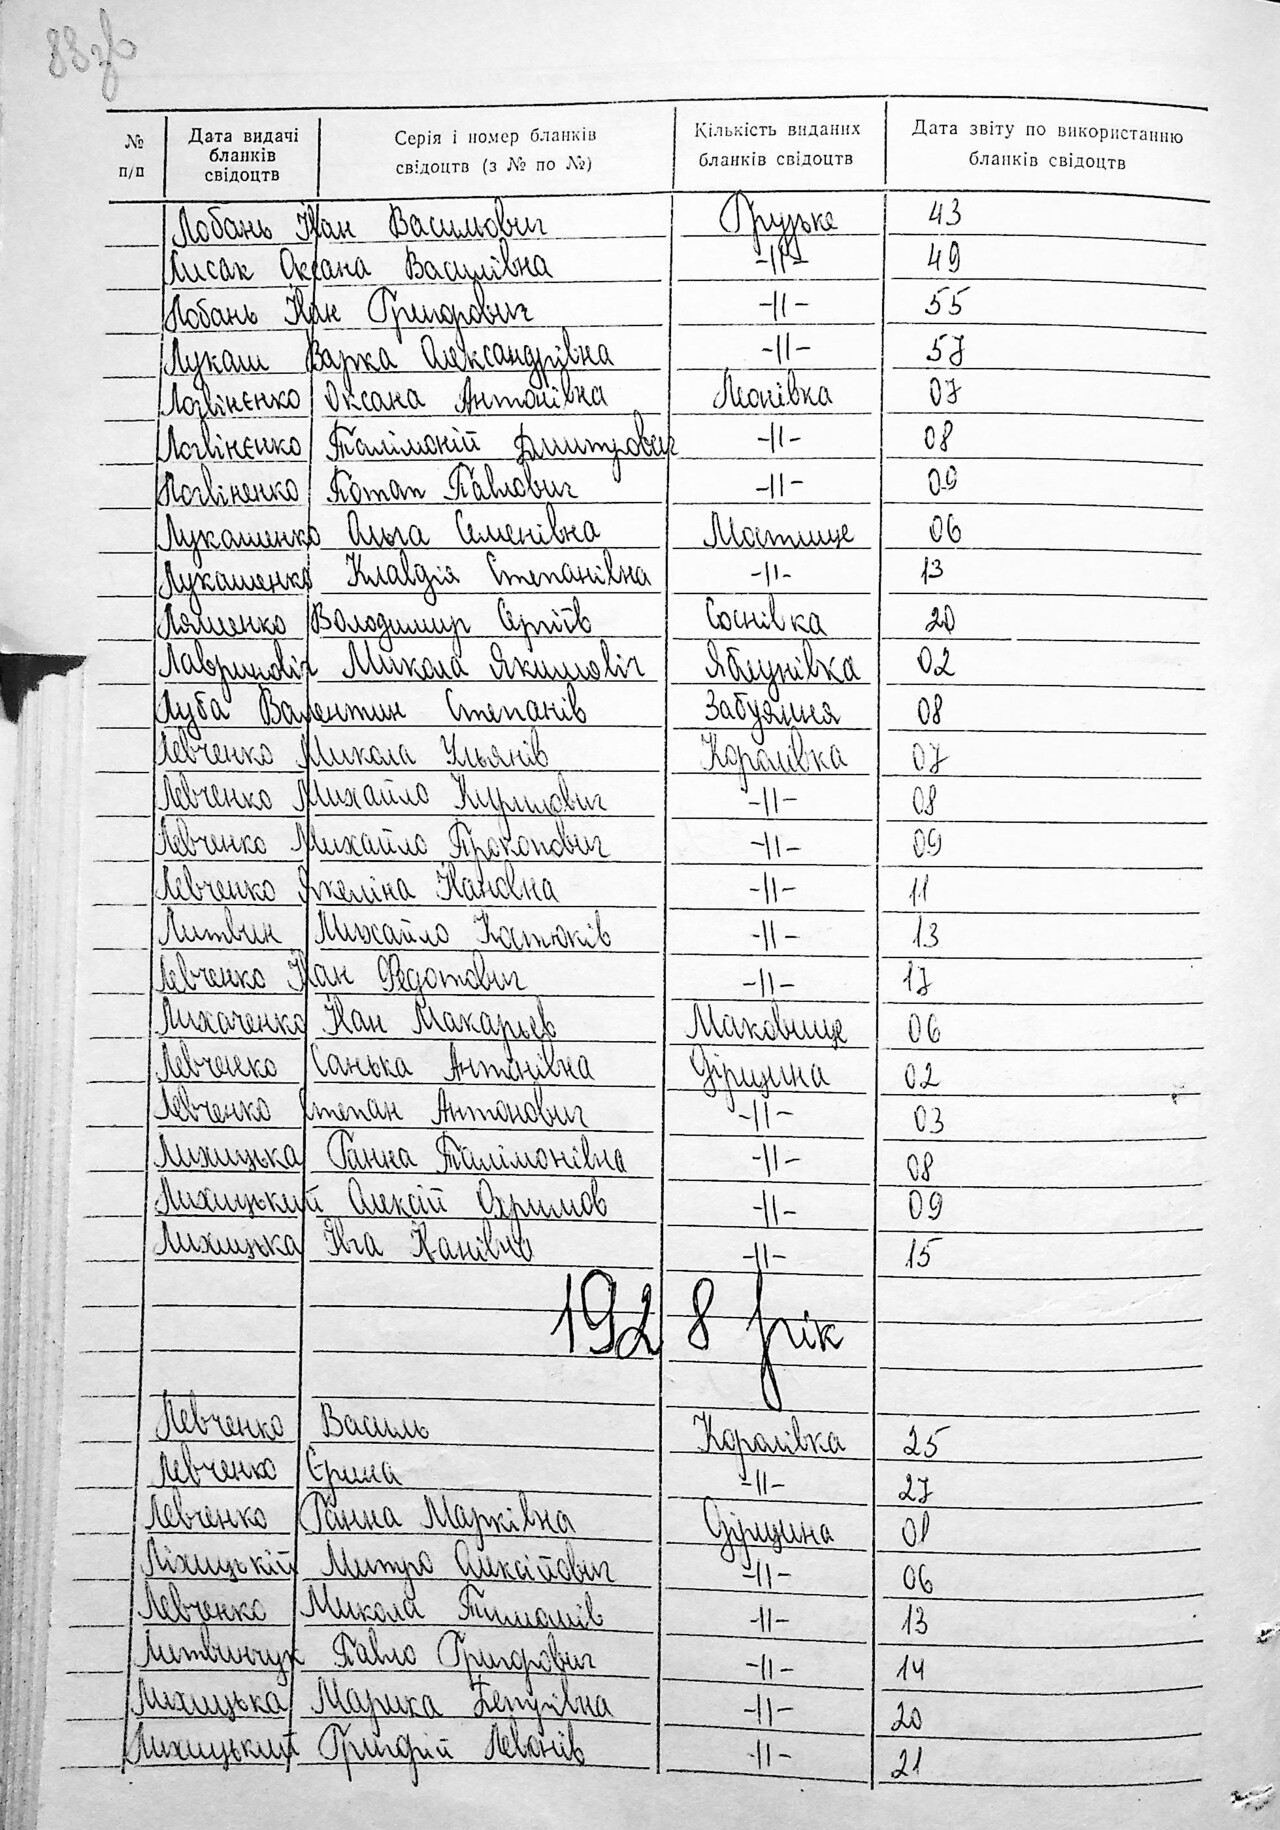 88зв
№ п/п Дата видачі бланків свідоцтв Серія і номер бланків свідоцтв (з № по №) Кількість виданих бланків свідоцтв Дата звіту по використанню бланків свідоцтв
Лобань Іван Васильович Грузьке 43
Лисак Оксана Василівна -||- 49
Лобань Іван Григорович -||- 55
Лукаш Варка Олександрівна -||- 57
Логвінєнко Оксана Антонівна Леонівка 07
Логвінєнко Палімоній Дмитрович -||- 08
Логвіненко Потап Павлович -||- 09
Лукашенко Ольга Семенівна Мостище 06
Лукашенко Клавдія Степанівна -||- 13
Ляшенко Володимир Сергіїв Соснівка 20
Лавринovіч Микола Якимовіч Яблунівка 02
Луба Валентин Степанів Забуяння 08
Левченко Микола Ульянів Королівка 07
Левченко Михайло -||- 08
Левченко Михайло Прокопович -||- 09
Левченко Якеліна Івановна -||- 11
Литвин Михайло Костюків -||- 13
Левченко Іван Федотович -||- 17
Лихаченко Іван Макарьев Маковище 06
Левченко Санька Антонівна Дірщина 02
Левченко Степан Антонович -||- 03
Лихицька Ганна Палімонівна -||- 08
Лихицький Олексій Охримов -||- 09
Лихицька Івга Іванівна -||- 15
1928 рік
Левченко Василь Королівка 25
Левченко Єрина -||- 27
Левченко Ганна Марківна Дірщина 01
Ліхицькій Митро Олексійович -||- 06
Левченко Микола Тимошів -||- 13
Литвинчук Павло Григорович -||- 14
Лихицька Марика Депутівна -||- 20
Лихицький Григорій Левонів -||- 21